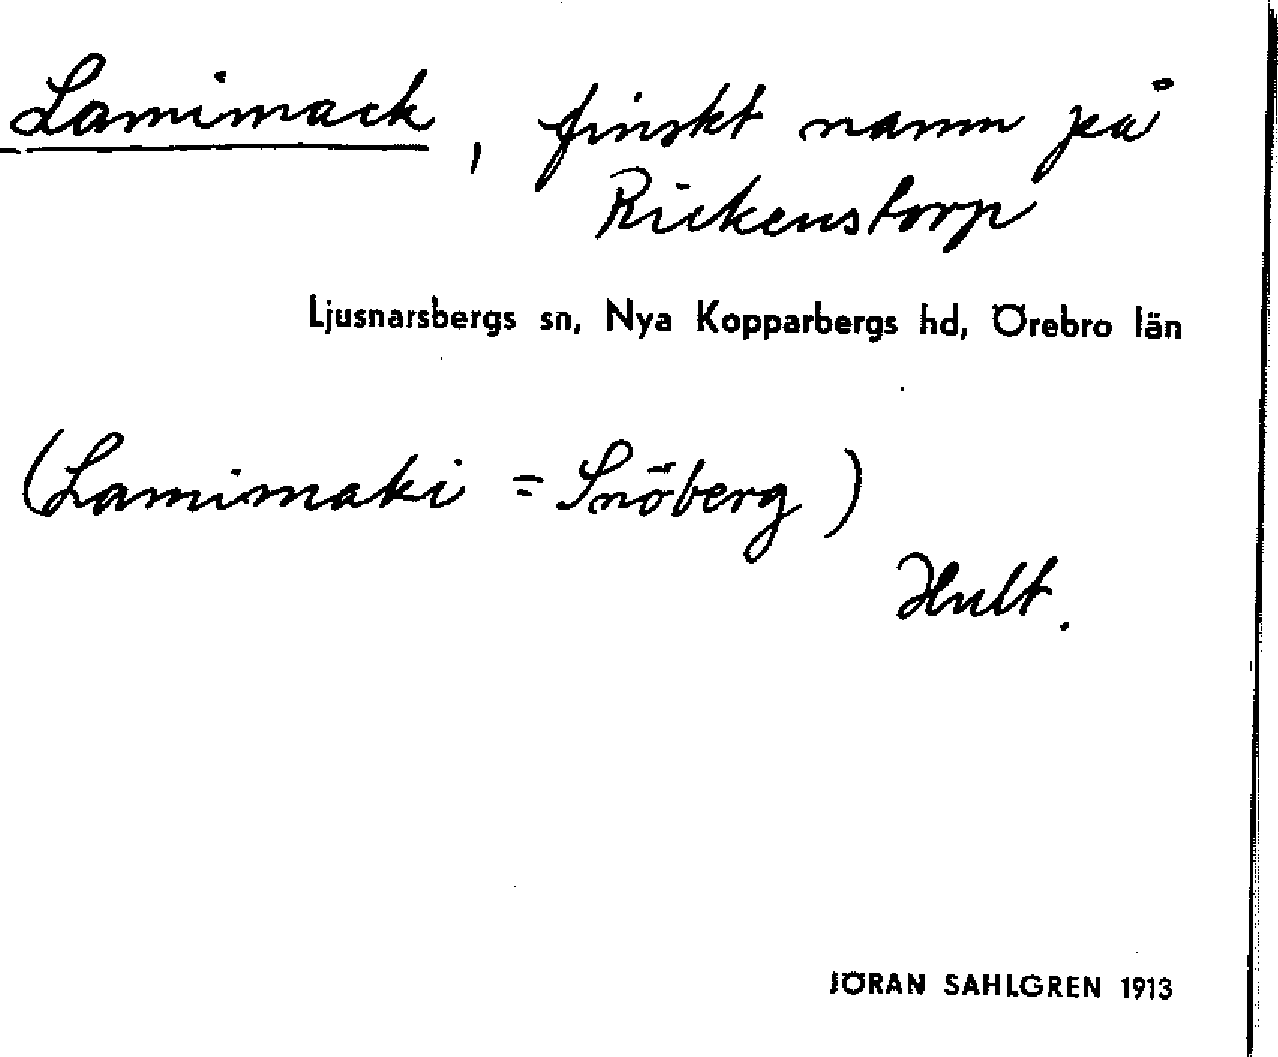 Lamimack, finskt namn på
Rickenstorp
Ljusnarsbergs sn, Nya Kopparbergs hd, Örebro län
(Lamimaki = Snöberg)
Hult.
JÖRAN SAHLGREN 1913